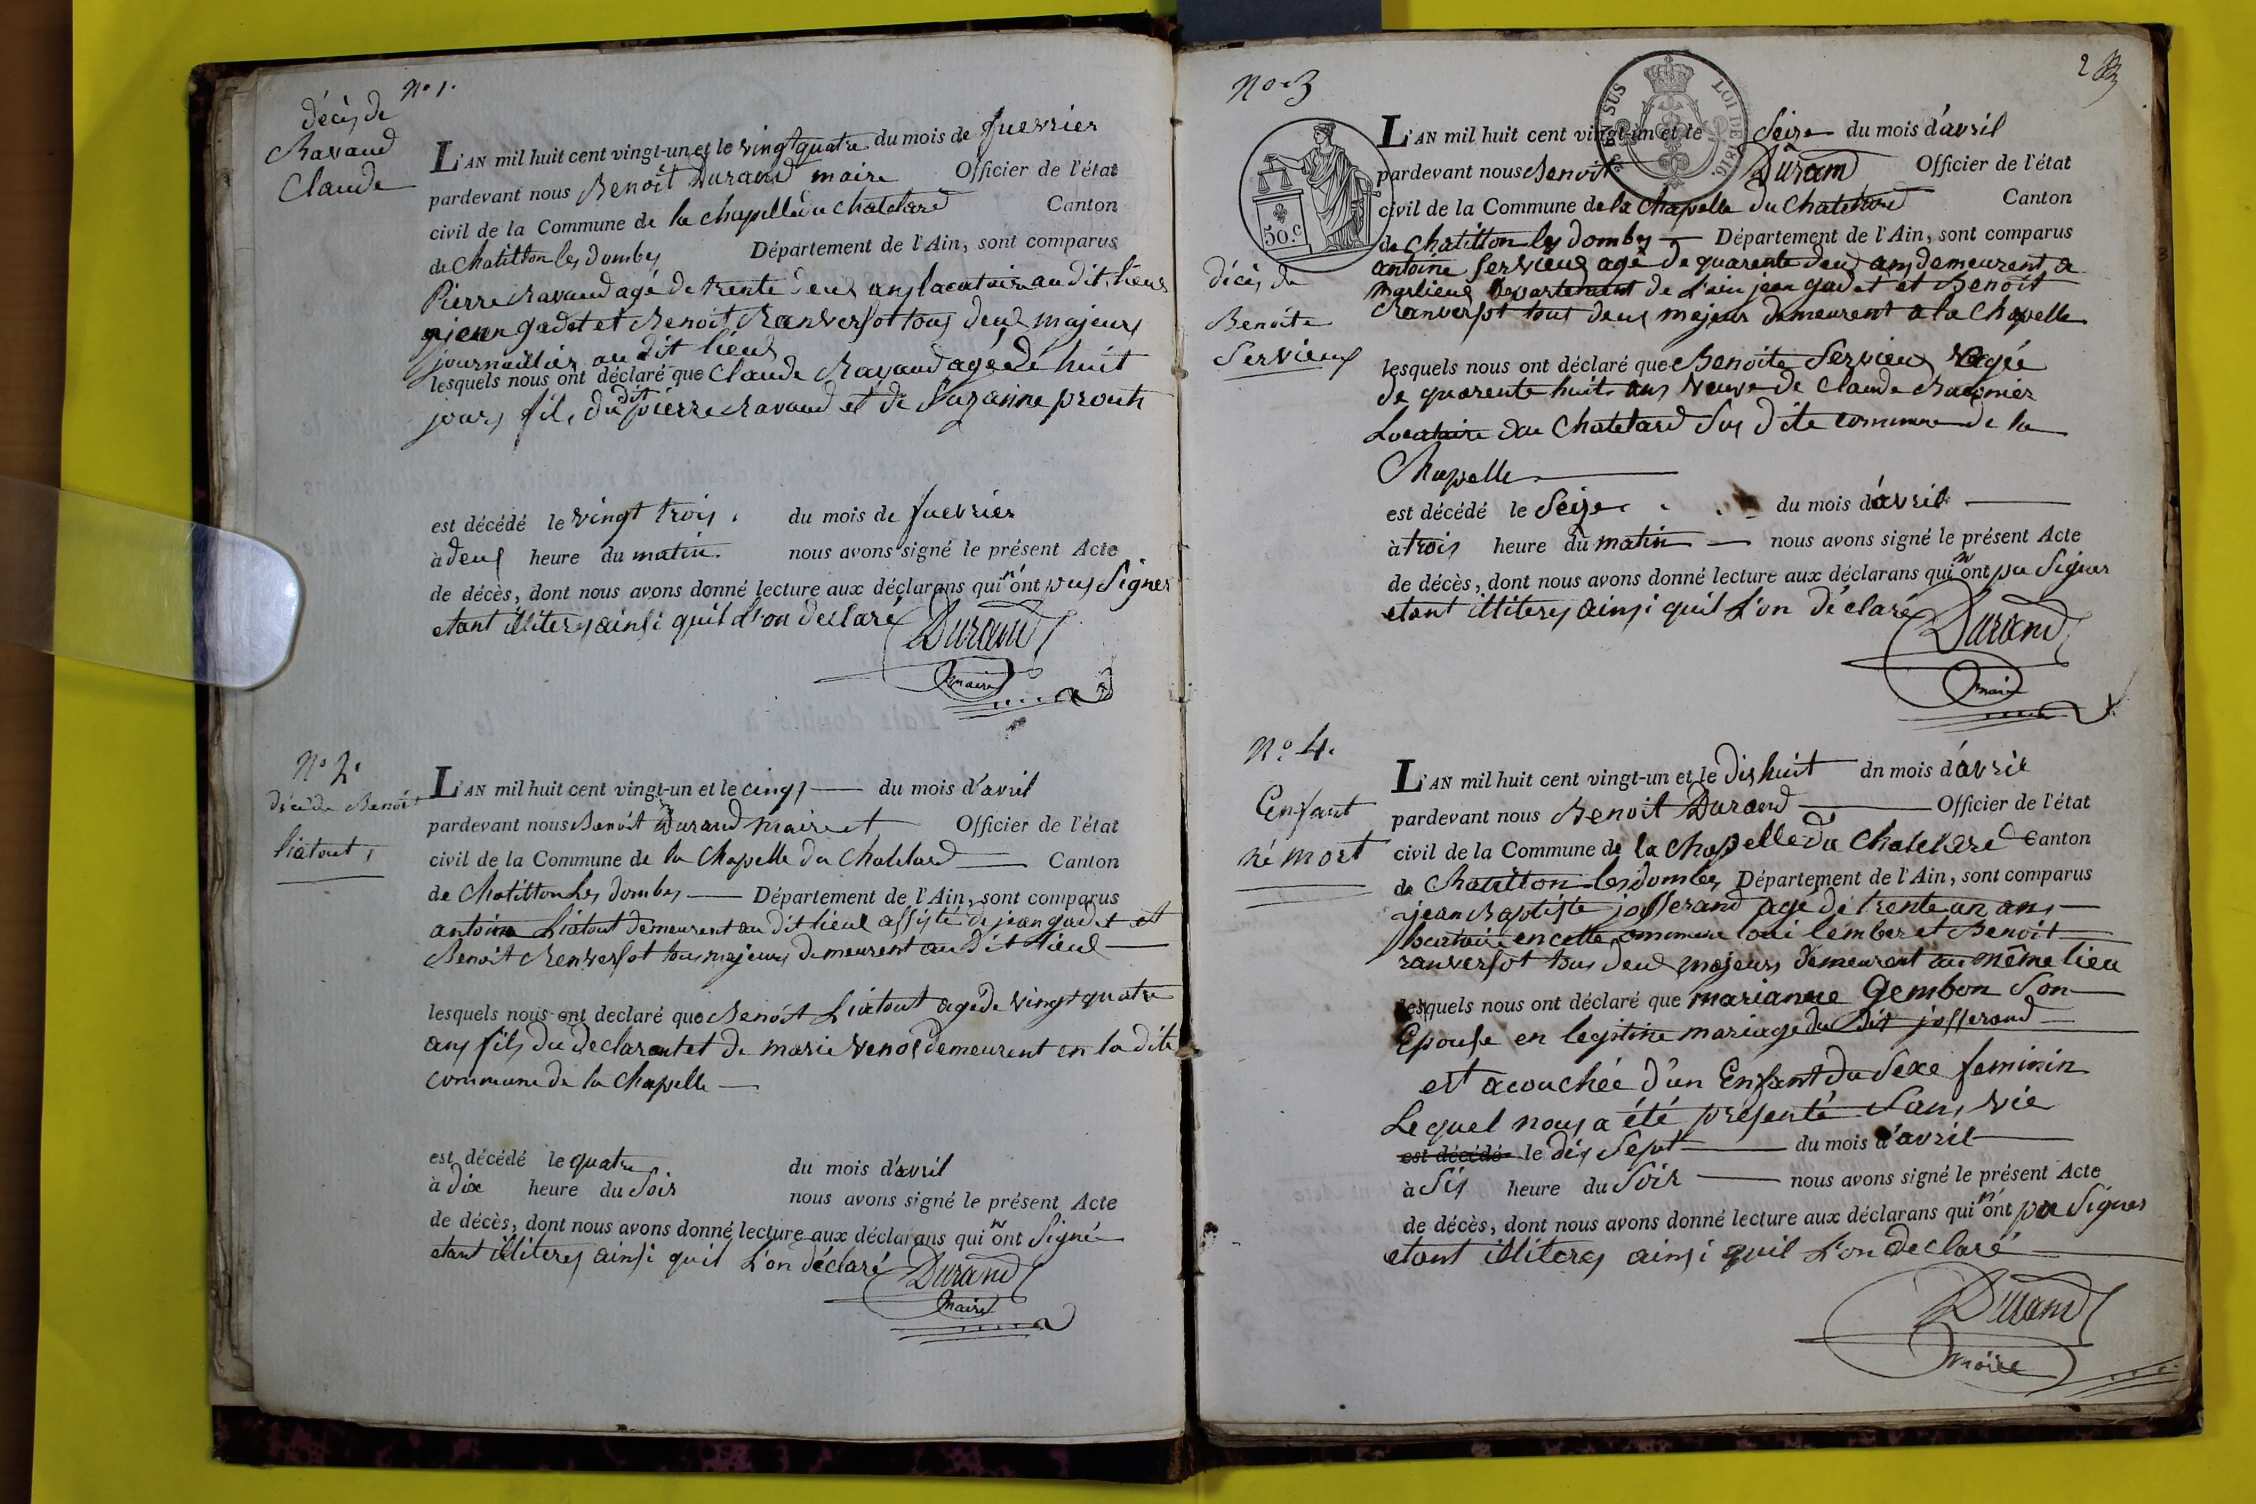 No 1.
décés de
Ravaud
Claude
L'AN mil huit cent vingt-un et le vingt quatre du mois de fuevrier
pardevant nous Benoît Durand maire Officier de l'état
civil de la Commune de la chapelle du chatelard Canton
de Chatillon les dombes Département de l'Ain, sont comparus
Pierre Ravaud agé de trente deux ans locataire au dit lieux
jean gadet et Benoit Ranversot tous deux majeurs
journaillier au dit lieux
lesquels nous ont déclaré que Claude Ravaud agé de huit
jours fils du dit pierre Ravaud et de Suzanne
est décédé le vingt trois du mois de fuevrier
à deux heure du matin nous avons signé le présent Acte
de décès, dont nous avons donné lecture aux déclarans qui n'ont pus Signer
etant illiteres ainsi quil l'on declaré
Durand
maire
No 2.
décé de Benoit
liatout
L'AN mil huit cent vingt-un et le cinq du mois d'avril
pardevant nous Benoit Durand maire et Officier de l'état
civil de la Commune de la Chapelle du Chatelard Canton
de Chatillon Les dombes Département de l'Ain, sont comparus
antoine Liatout demeurent au dit lieux assisté de jean gadet et
Benoit Renversot tous majeurs demeurent au dit lieux
lesquels nous ont declaré que Benoit Liatout agé de vingt quatre
ans fils du déclarent et de marie demeurent en la dite
commune de la Chapelle
est décédé le quatre du mois d'avril
à dix heure du Soir nous avons signé le présent Acte
de décès, dont nous avons donné lecture aux déclarans qui n ont Signé
etant illiteres ainsi quil L'on déclaré
Durand
maire
No 3
2
SUS LOI DE 1816.
50.c
décés de
Benoite
Servieux
L'AN mil huit cent vingt-un et le Seize du mois d'avril
pardevant nous Benoit Durand Officier de l'état
civil de la Commune de la Chapelle du Chatelard Canton
de Chatillon les dombes Département de l'Ain, sont comparus
antoine Servieux agé de quarente deux ans demeurent a
Marlieux Departement de L'ain jean gadet et Benoit
Ranversot tous deux majeur demeurent a la Chapelle
lesquels nous ont déclaré que Benoite Servieux agée
de quarente huit ans veuve de Claude
Locataire au Chatelard Sus dite commune de la
Chapelle
est décédé le Seize du mois d'avril
à trois heure du matin nous avons signé le présent Acte
de décès, dont nous avons donné lecture aux déclarans qui n ont pu Signer
etant illiteres ainsi quil L'on déclaré
Durand
maire
No 4.
Enfant
né mort
L'AN mil huit cent vingt-un et le dix huit dn mois d'avril
pardevant nous Benoit Durand Officier de l'état
civil de la Commune de la chapelle du Chatelard Canton
de Chatillon les dombes Département de l'Ain, sont comparus
jean Baptiste josserand agé de trente un ans
locataire en cette commune et Benoit
ranversot tous deux majeurs demeurent au même lieu
lesquels nous ont déclaré que marianne Gembon Son
Epouse en legitime mariage du dit josserand
est acouchée d'un Enfant du Sexe feminin
Lequel nous a été présenté Sans vie
est décédé le dix Sept du mois d'avril
à Six heure du Soir nous avons signé le présent Acte
de décès, dont nous avons donné lecture aux déclarans qui n'ont pu Signer
etant illiteres ainsi quil L'on declaré
Durand
maire